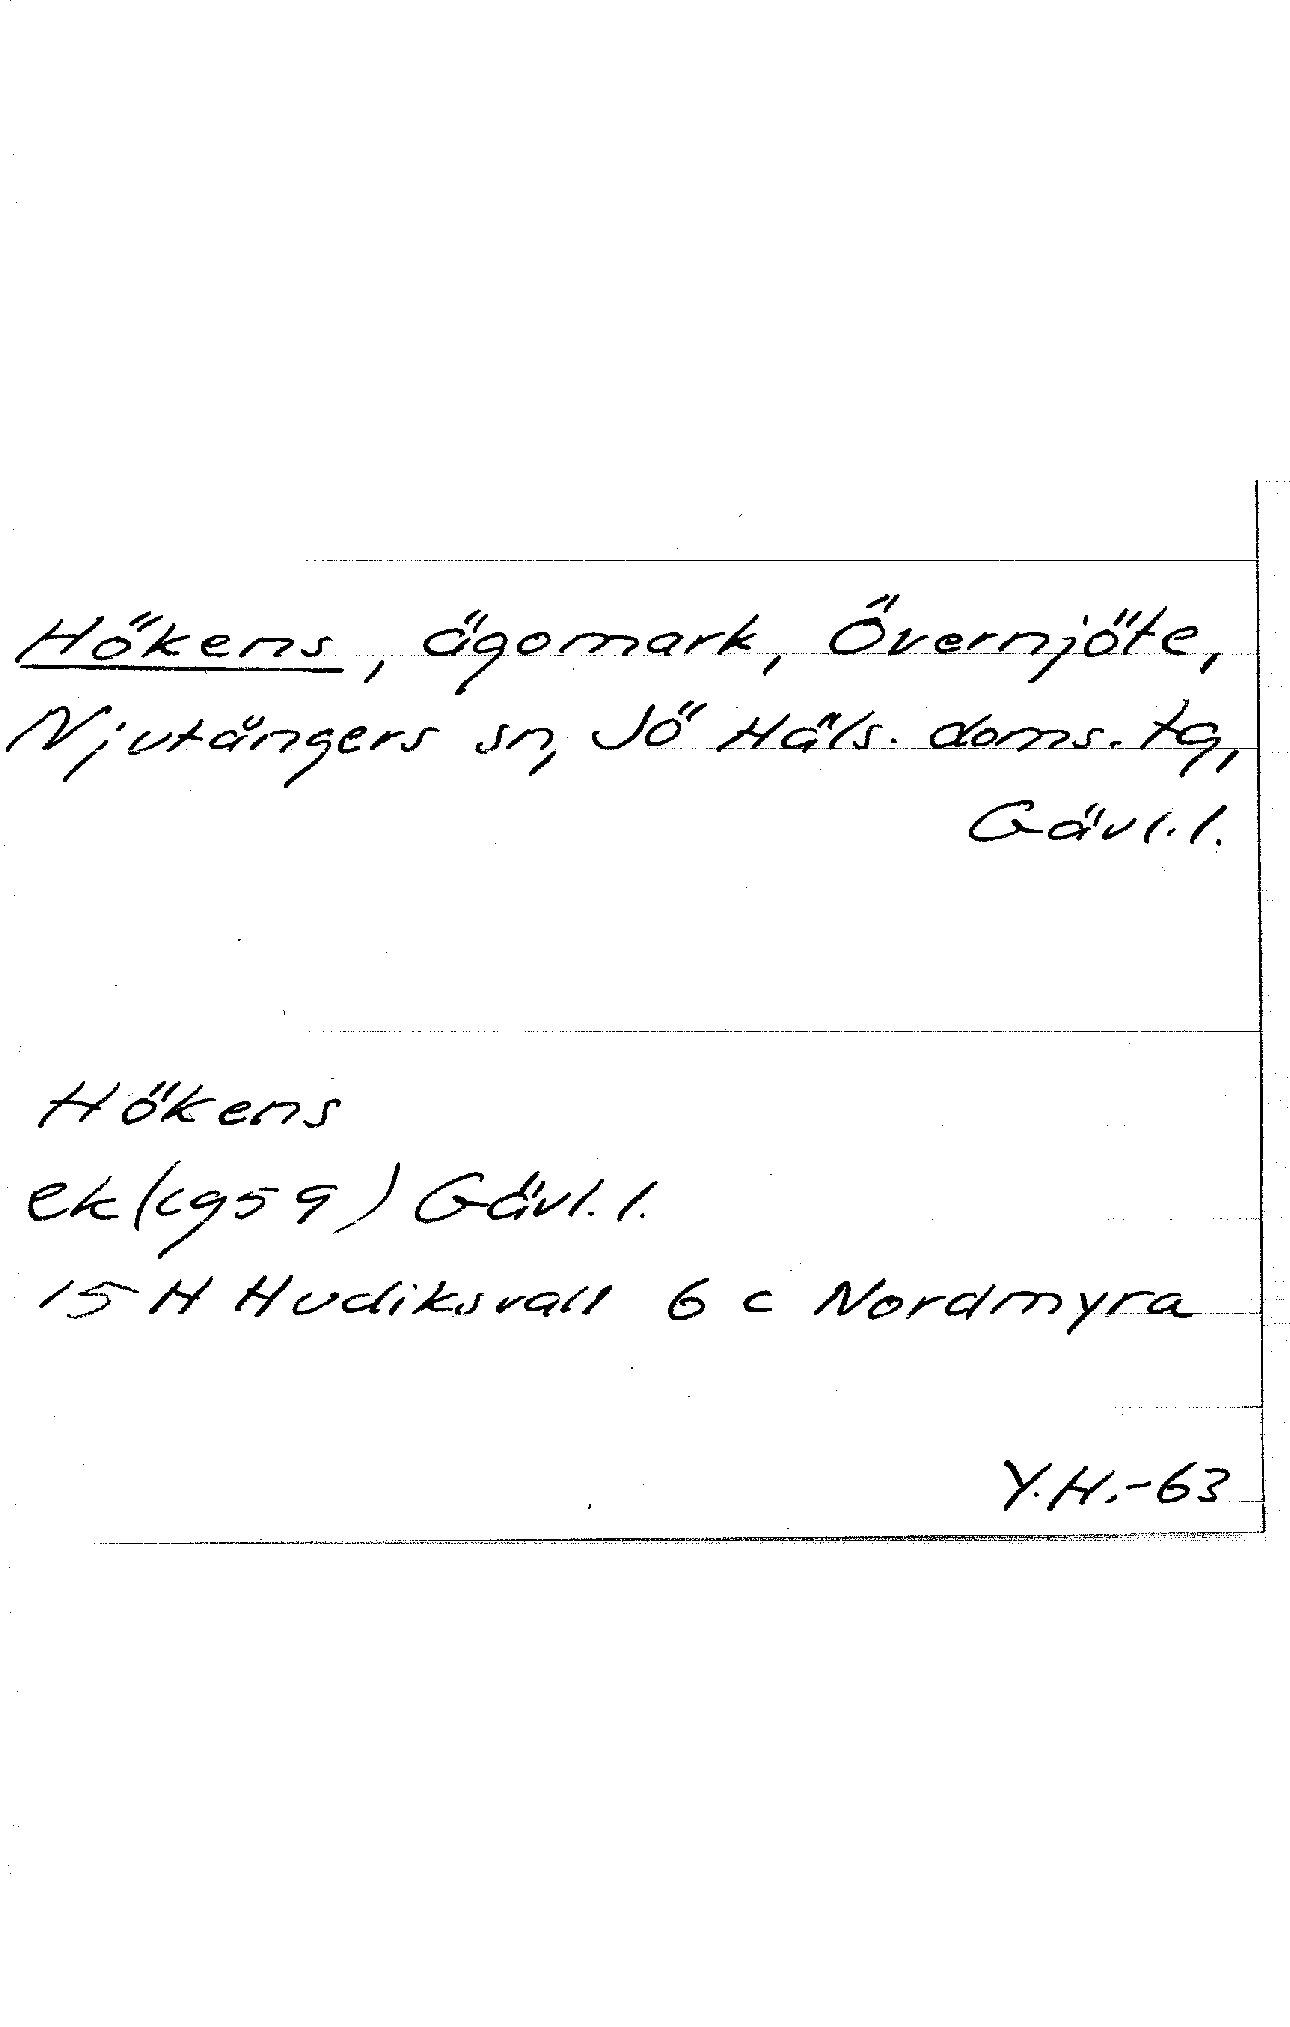 Hökens, ägomark, Övernjöte,
Njutångers sn, Jö Häls. doms. tg,
Gävl. l.
Hökens
ek (cg59) Gävl. l.
15 H Hudiksvall 6 c Nordmyra
Y.H.-63